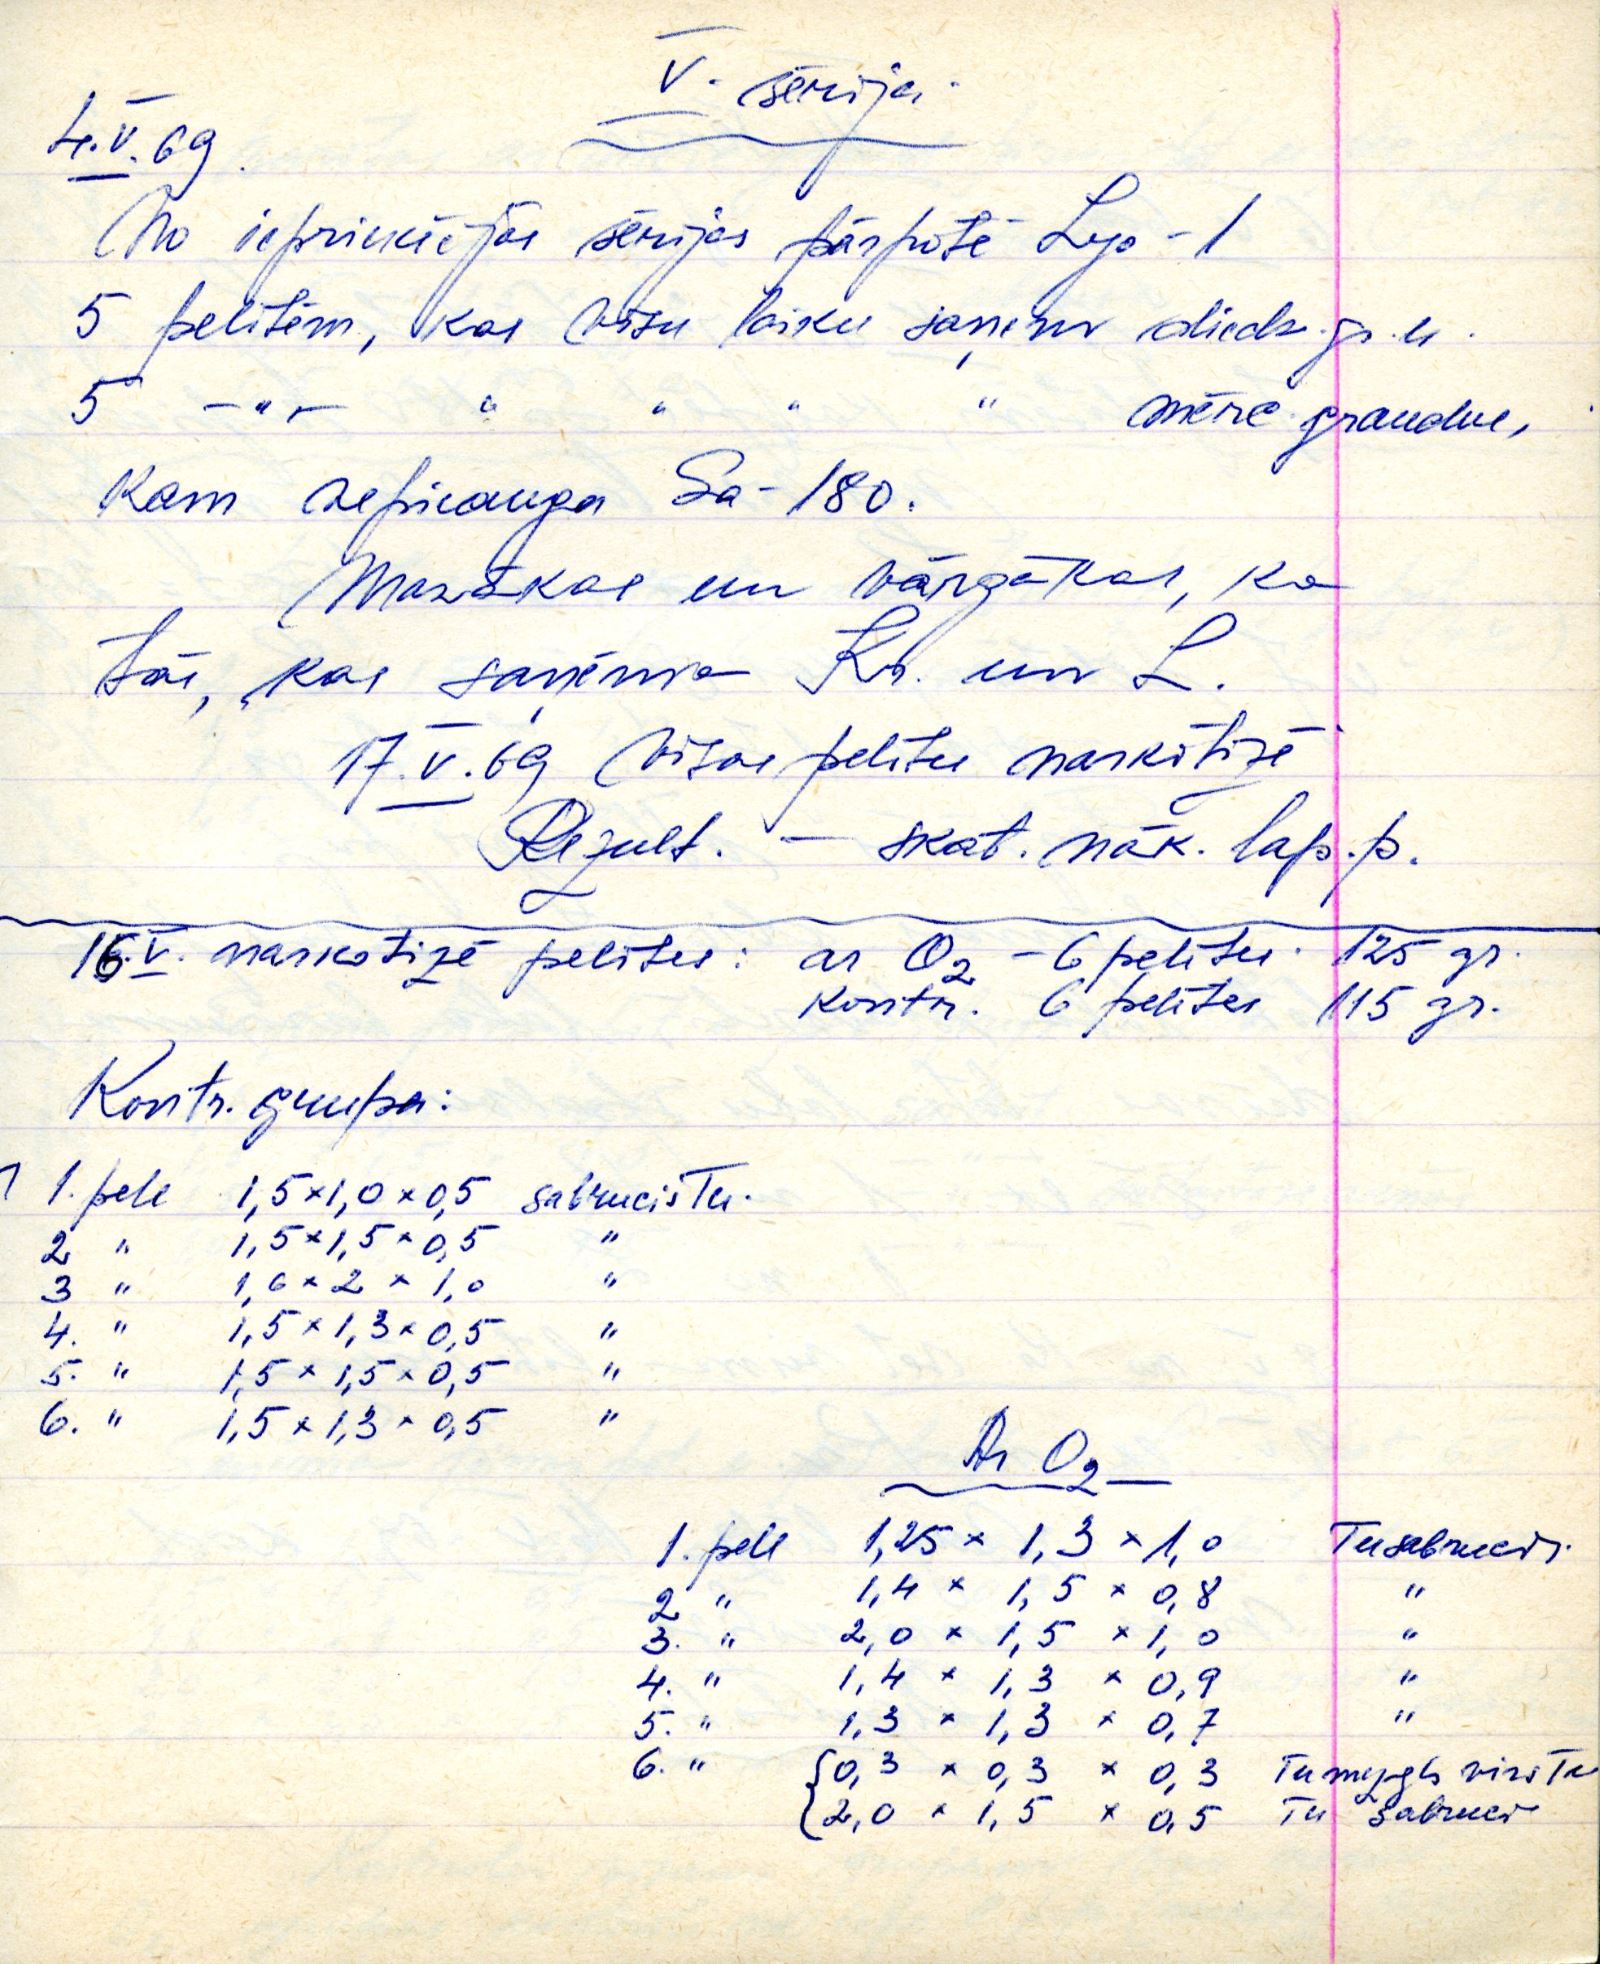 V. sērija.
4.V.69.
No iepriekšējās sērijas pārpotē Lyo-1
5 pelītēm, kas visu laiku saņem diedz. gr. u.
5 —"— " " " " mērc. graudus,
kam nepieauga Sa-180.
Mazākas un vārgākas, ka
tās, kas saņēma Kr. un L.
17.V.69 visas pelītes narkotizē
Rezult. — skat. nāk. lap.p.
16.V. narkotizē pelītes: ar O2 - 6 pelītes 125 gr.
Kontr. 6 pelītes 115 gr.
Kontr. grupa:
1. pele 1,5×1,0×0,5 sabrucis Tu.
2 " 1,5×1,5×0,5 "
3 " 1,6×2×1,0 "
4. " 1,5×1,3×0,5 "
5. " 1,5×1,5×0,5 "
6. " 1,5×1,3×0,5 "
Ar O2
1. pele 1,25×1,3×1,0 Tu sabrucis.
2 " 1,4×1,5×0,8 "
3. " 2,0×1,5×1,0 "
4. " 1,4×1,3×0,9 "
5. " 1,3×1,3×0,7 "
6. " {0,3×0,3×0,3 Tu mezgls virs Tu
{2,0×1,5×0,5 Tu sabrucis